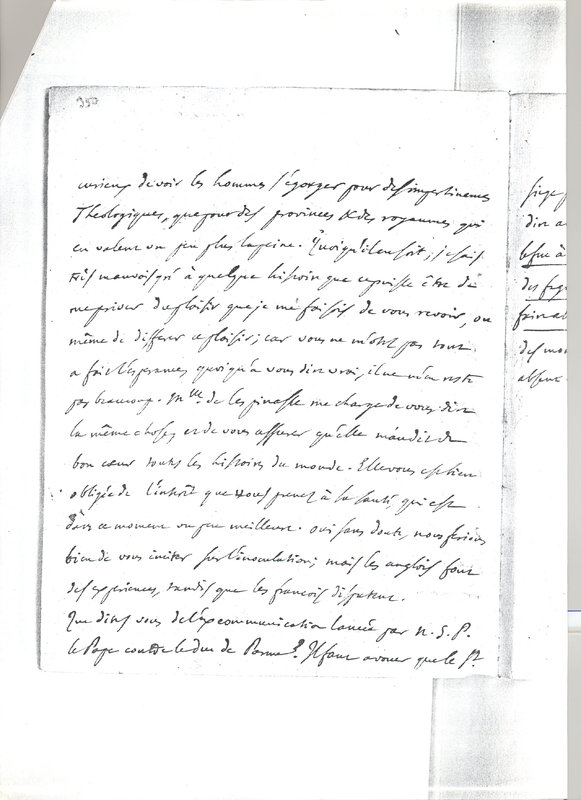 350
curieux de voir les hommes s'égorger pour des impertinences
Theologiques, que pour des provinces & des royaumes qui
en valent un peu plus la peine. Quoiqu'il en soit, je sais
très mauvais gré à quelque histoire que ce puisse être de
me priver du plaisir que je me faisois de vous revoir, ou
même de differer ce plaisir; car vous ne m'otez pas tout
a fait l'esperance, quoiqu'a vous dire vrai, il ne m'en reste
pas beaucoup. Mlle. de lespinasse me charge de vous dire
la même chose, et de vous assurer qu'elle maudit de
bon coeur toutes les histoires du monde. Elle vous est bien
obligée de l'interêt que vous prenez à sa santé, qui est
dans ce moment un peu meilleure. oui sans doute, nous ferions
bien de vous imiter sur l'inoculation; mais les anglois font
des expériences, tandis que les francois disputent.
Que dites vous de l'excommunication lancée par n. S. P.
le Pape contre le duc de Parme? Il faut avouer que le St.
siege
dire a
des
des mo
absent